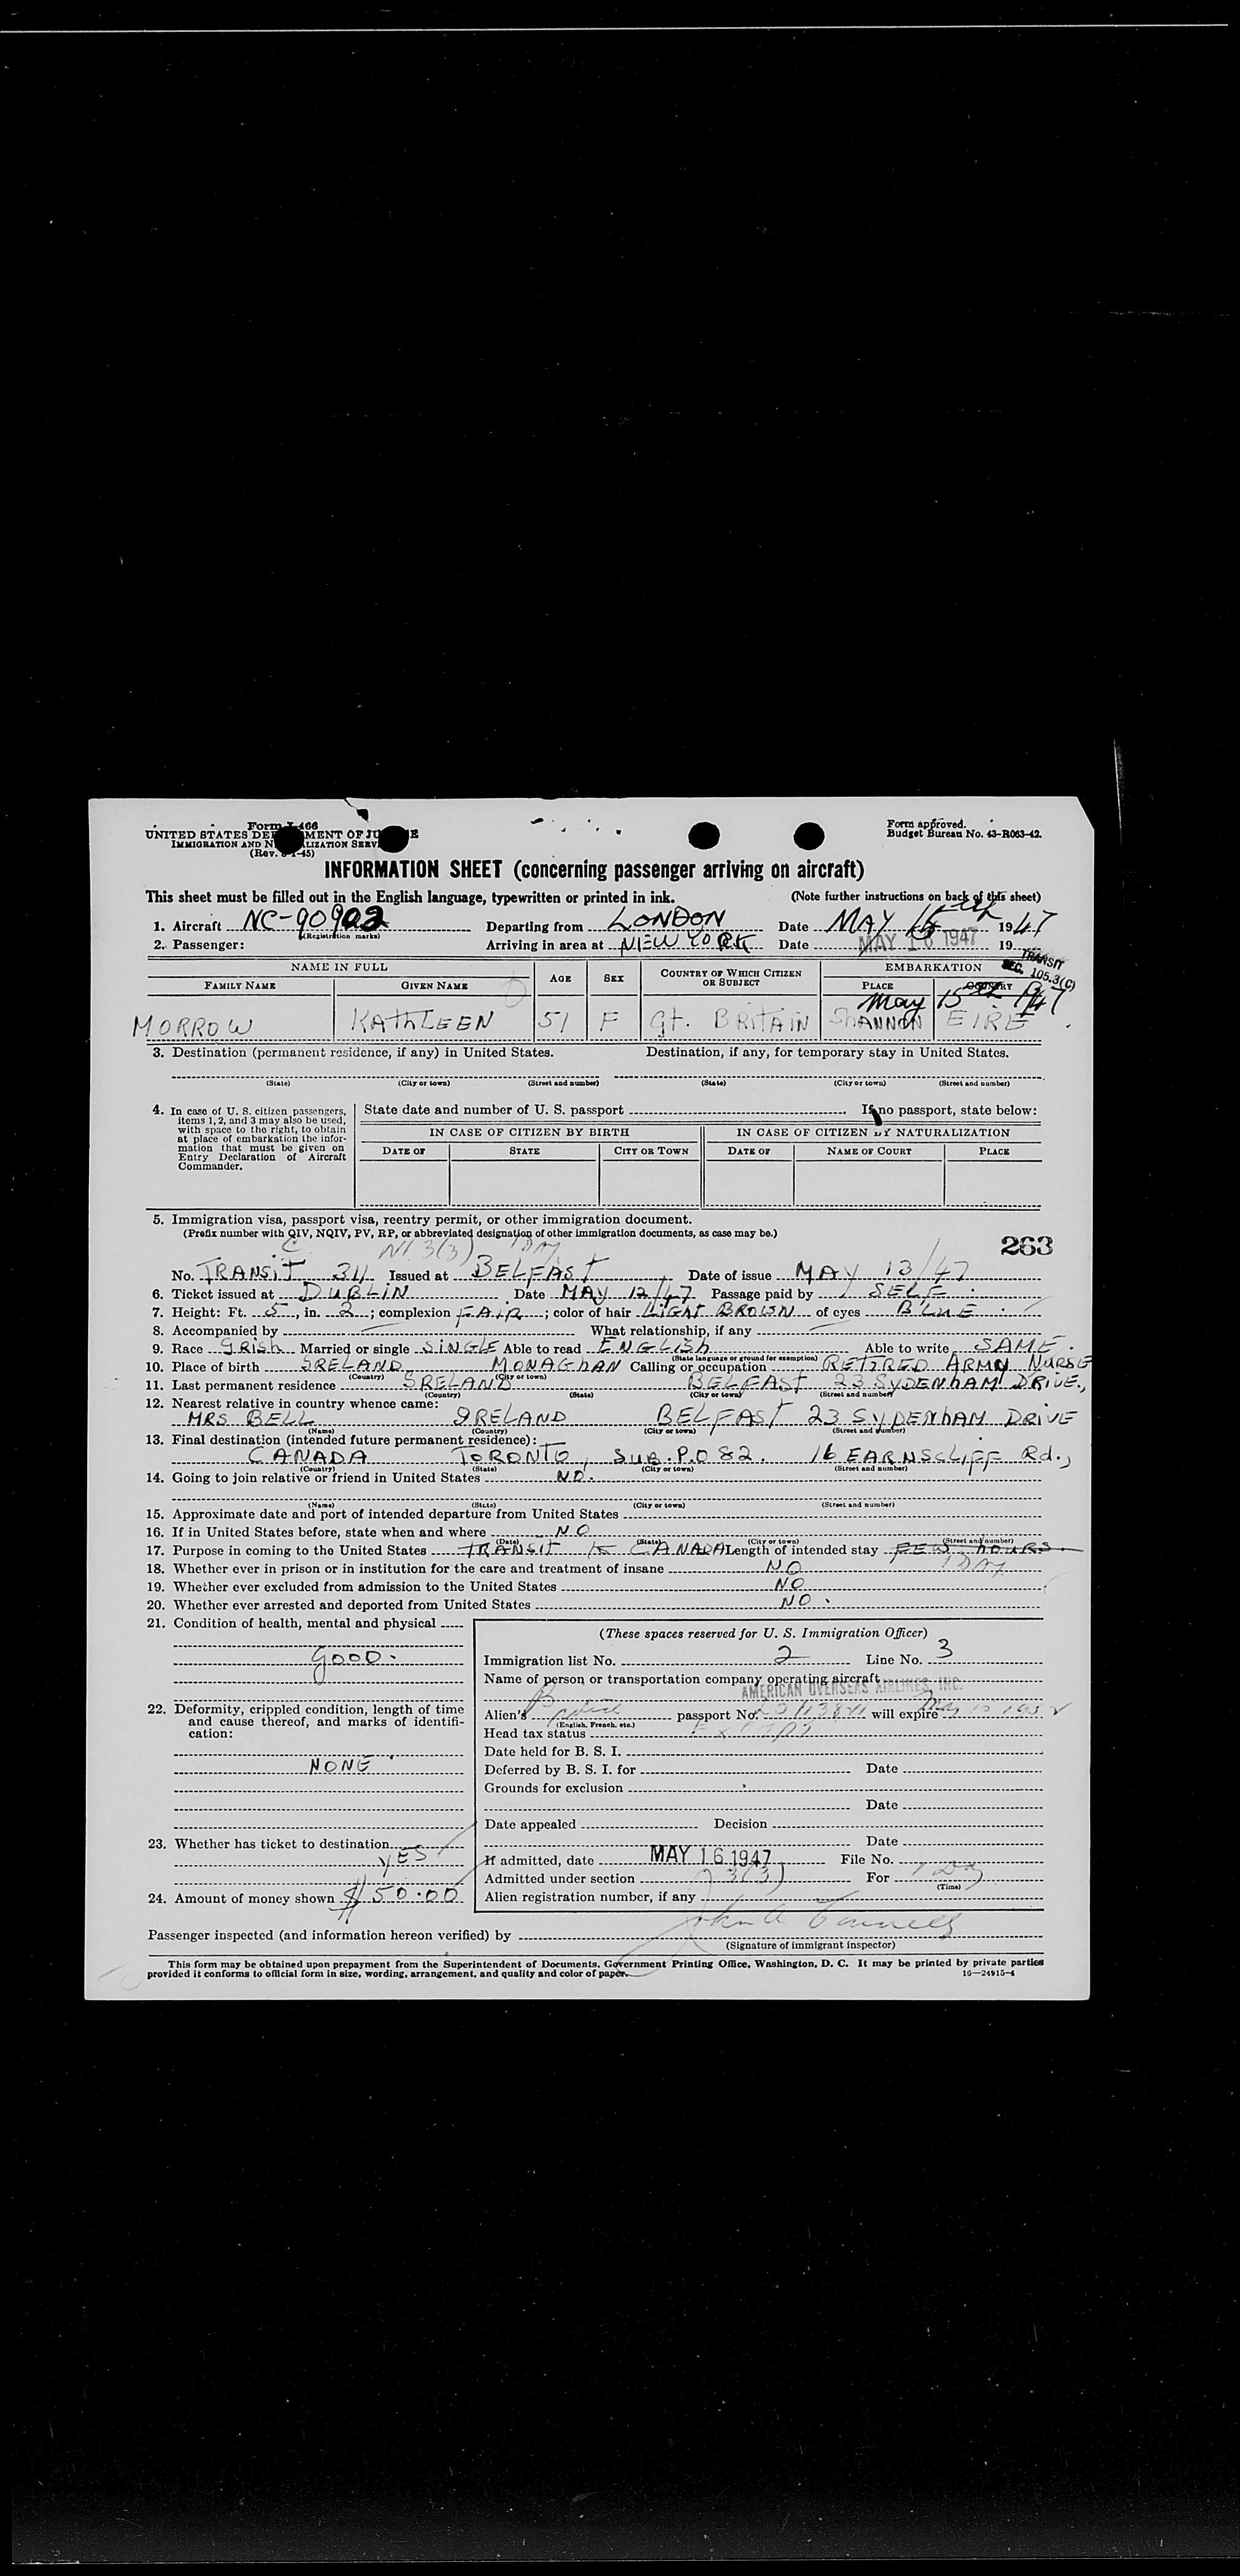 Form I-466
UNITED STATES DEPARTMENT OF JUSTICE
IMMIGRATION AND NATURALIZATION SERVICE
(Rev. 8-1-45)
Form approved.
Budget Bureau No. 43-R063-42.
INFORMATION SHEET (concerning passenger arriving on aircraft)
This sheet must be filled out in the English language, typewritten or printed in ink. (Note further instructions on back of this sheet)
1. Aircraft NC-90902 Departing from LONDON Date MAY 15th 1947
(Registration marks)
2. Passenger: Arriving in area at NEW YORK Date MAY 16 1947 19
TRANSIT
SEC. 105.3(C)
NAME IN FULL AGE SEX COUNTRY OF WHICH CITIZEN OR SUBJECT EMBARKATION
FAMILY NAME GIVEN NAME PLACE COUNTRY
May 15th 1947
MORROW KATHLEEN 51 F Gt. BRITAIN SHANNON EIRE
3. Destination (permanent residence, if any) in United States. Destination, if any, for temporary stay in United States.
(State) (City or town) (Street and number) (State) (City or town) (Street and number)
4. In case of U. S. citizen passengers, items 1, 2, and 3 may also be used, with space to the right, to obtain at place of embarkation the information that must be given on Entry Declaration of Aircraft Commander.
State date and number of U. S. passport If no passport, state below:
IN CASE OF CITIZEN BY BIRTH IN CASE OF CITIZEN BY NATURALIZATION
DATE OF STATE CITY OR TOWN DATE OF NAME OF COURT PLACE
5. Immigration visa, passport visa, reentry permit, or other immigration document.
(Prefix number with QIV, NQIV, PV, RP, or abbreviated designation of other immigration documents, as case may be.)
C 3(3) 1 DAY 263
No. TRANSIT 311 Issued at BELFAST Date of issue MAY 13/47
6. Ticket issued at DUBLIN Date MAY 12/47 Passage paid by SELF
7. Height: Ft. 5, in. 2; complexion FAIR; color of hair LIGHT BROWN of eyes BLUE
8. Accompanied by — What relationship, if any —
9. Race IRISH Married or single SINGLE Able to read ENGLISH Able to write SAME.
(State language or ground for exemption)
10. Place of birth IRELAND MONAGHAN Calling or occupation RETIRED ARMY NURSE
(Country) (City or town)
11. Last permanent residence IRELAND BELFAST 23 SYDENHAM DRIVE,
(Country) (State) (City or town) (Street and number)
12. Nearest relative in country whence came:
MRS BELL IRELAND BELFAST 23 SYDENHAM DRIVE
(Name) (Country) (City or town) (Street and number)
13. Final destination (intended future permanent residence):
CANADA TORONTO, SUB. P.O 82. 16 EARNSCLIFF Rd.,
(Country) (State) (City or town) (Street and number)
14. Going to join relative or friend in United States NO.
(Name) (State) (City or town) (Street and number)
15. Approximate date and port of intended departure from United States
16. If in United States before, state when and where NO
(Date) (State) (City or town) (Street and number)
17. Purpose in coming to the United States TRANSIT to CANADA Length of intended stay FEW HOURS
1 DAY
18. Whether ever in prison or in institution for the care and treatment of insane NO
19. Whether ever excluded from admission to the United States NO
20. Whether ever arrested and deported from United States NO.
21. Condition of health, mental and physical
GOOD.
22. Deformity, crippled condition, length of time and cause thereof, and marks of identification:
NONE
23. Whether has ticket to destination
YES
24. Amount of money shown $150.00
(These spaces reserved for U. S. Immigration Officer)
Immigration list No. 2 Line No. 3
Name of person or transportation company operating aircraft
AMERICAN OVERSEAS AIRLINES, INC.
Alien's passport No. will expire
(English, French, etc.)
Head tax status
Date held for B. S. I.
Deferred by B. S. I. for Date
Grounds for exclusion
Date
Date appealed Decision
Date
If admitted, date MAY 16 1947 File No.
Admitted under section 3(3) For 1 Day
(Time)
Alien registration number, if any
Passenger inspected (and information hereon verified) by John A
(Signature of immigrant inspector)
This form may be obtained upon prepayment from the Superintendent of Documents, Government Printing Office, Washington, D. C. It may be printed by private parties
provided it conforms to official form in size, wording, arrangement, and quality and color of paper.
16—24915-4